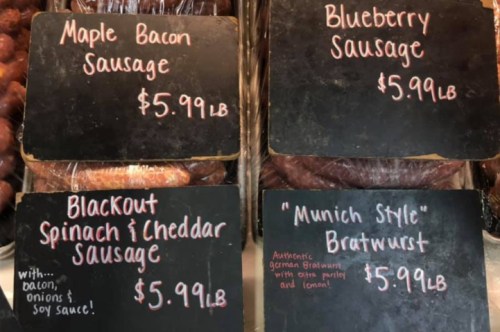 Maple Bacon
Sausage
$5.99 LB
Blueberry
Sausage
$5.99 LB
Blackout
Spinach & Cheddar
Sausage
with...
bacon,
onions &
soy sauce!
$5.99 LB
"Munich Style"
Bratwurst
Authentic
german Bratwurst
with extra parsley
and lemon!
$5.99 LB